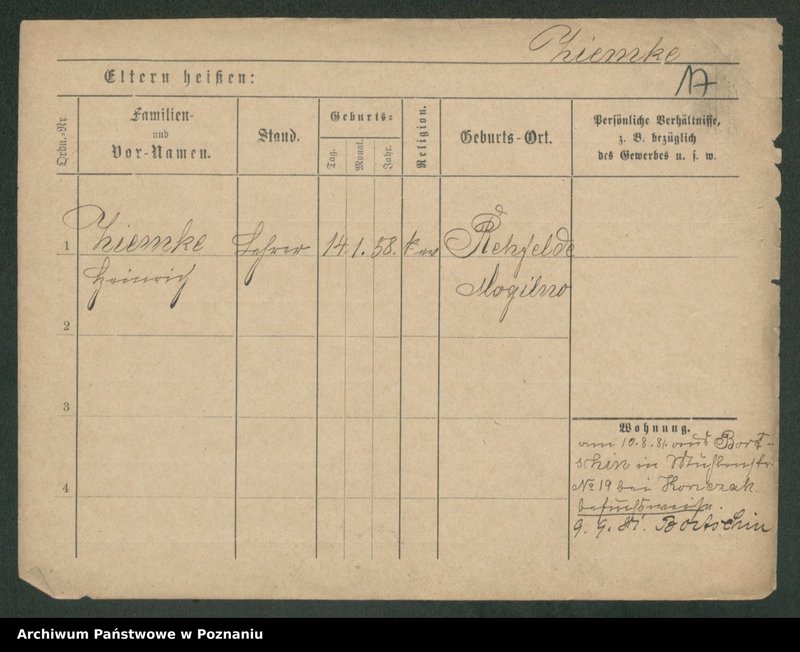 Ziemke
Eltern heißen:
17
Ordn.-Nr
Familien-
und
Vor-Namen.
Stand.
Geburts-
Tag.
Monat.
Jahr.
Religion.
Geburts-Ort.
Persönliche Verhältnisse,
z. B. bezüglich
des Gewerbes u. s. w.
1
Ziemke Lehrer 14 1. 58. ev Rehfelde
Heinrich Mogilno
2
3
4
Wohnung.
am 10.8.81. aus Bort-
schin in Mühlenstr
No 19 bei Konczak
besuchsweise.
9. 9. 81. Bortschin
Archiwum Państwowe w Poznaniu